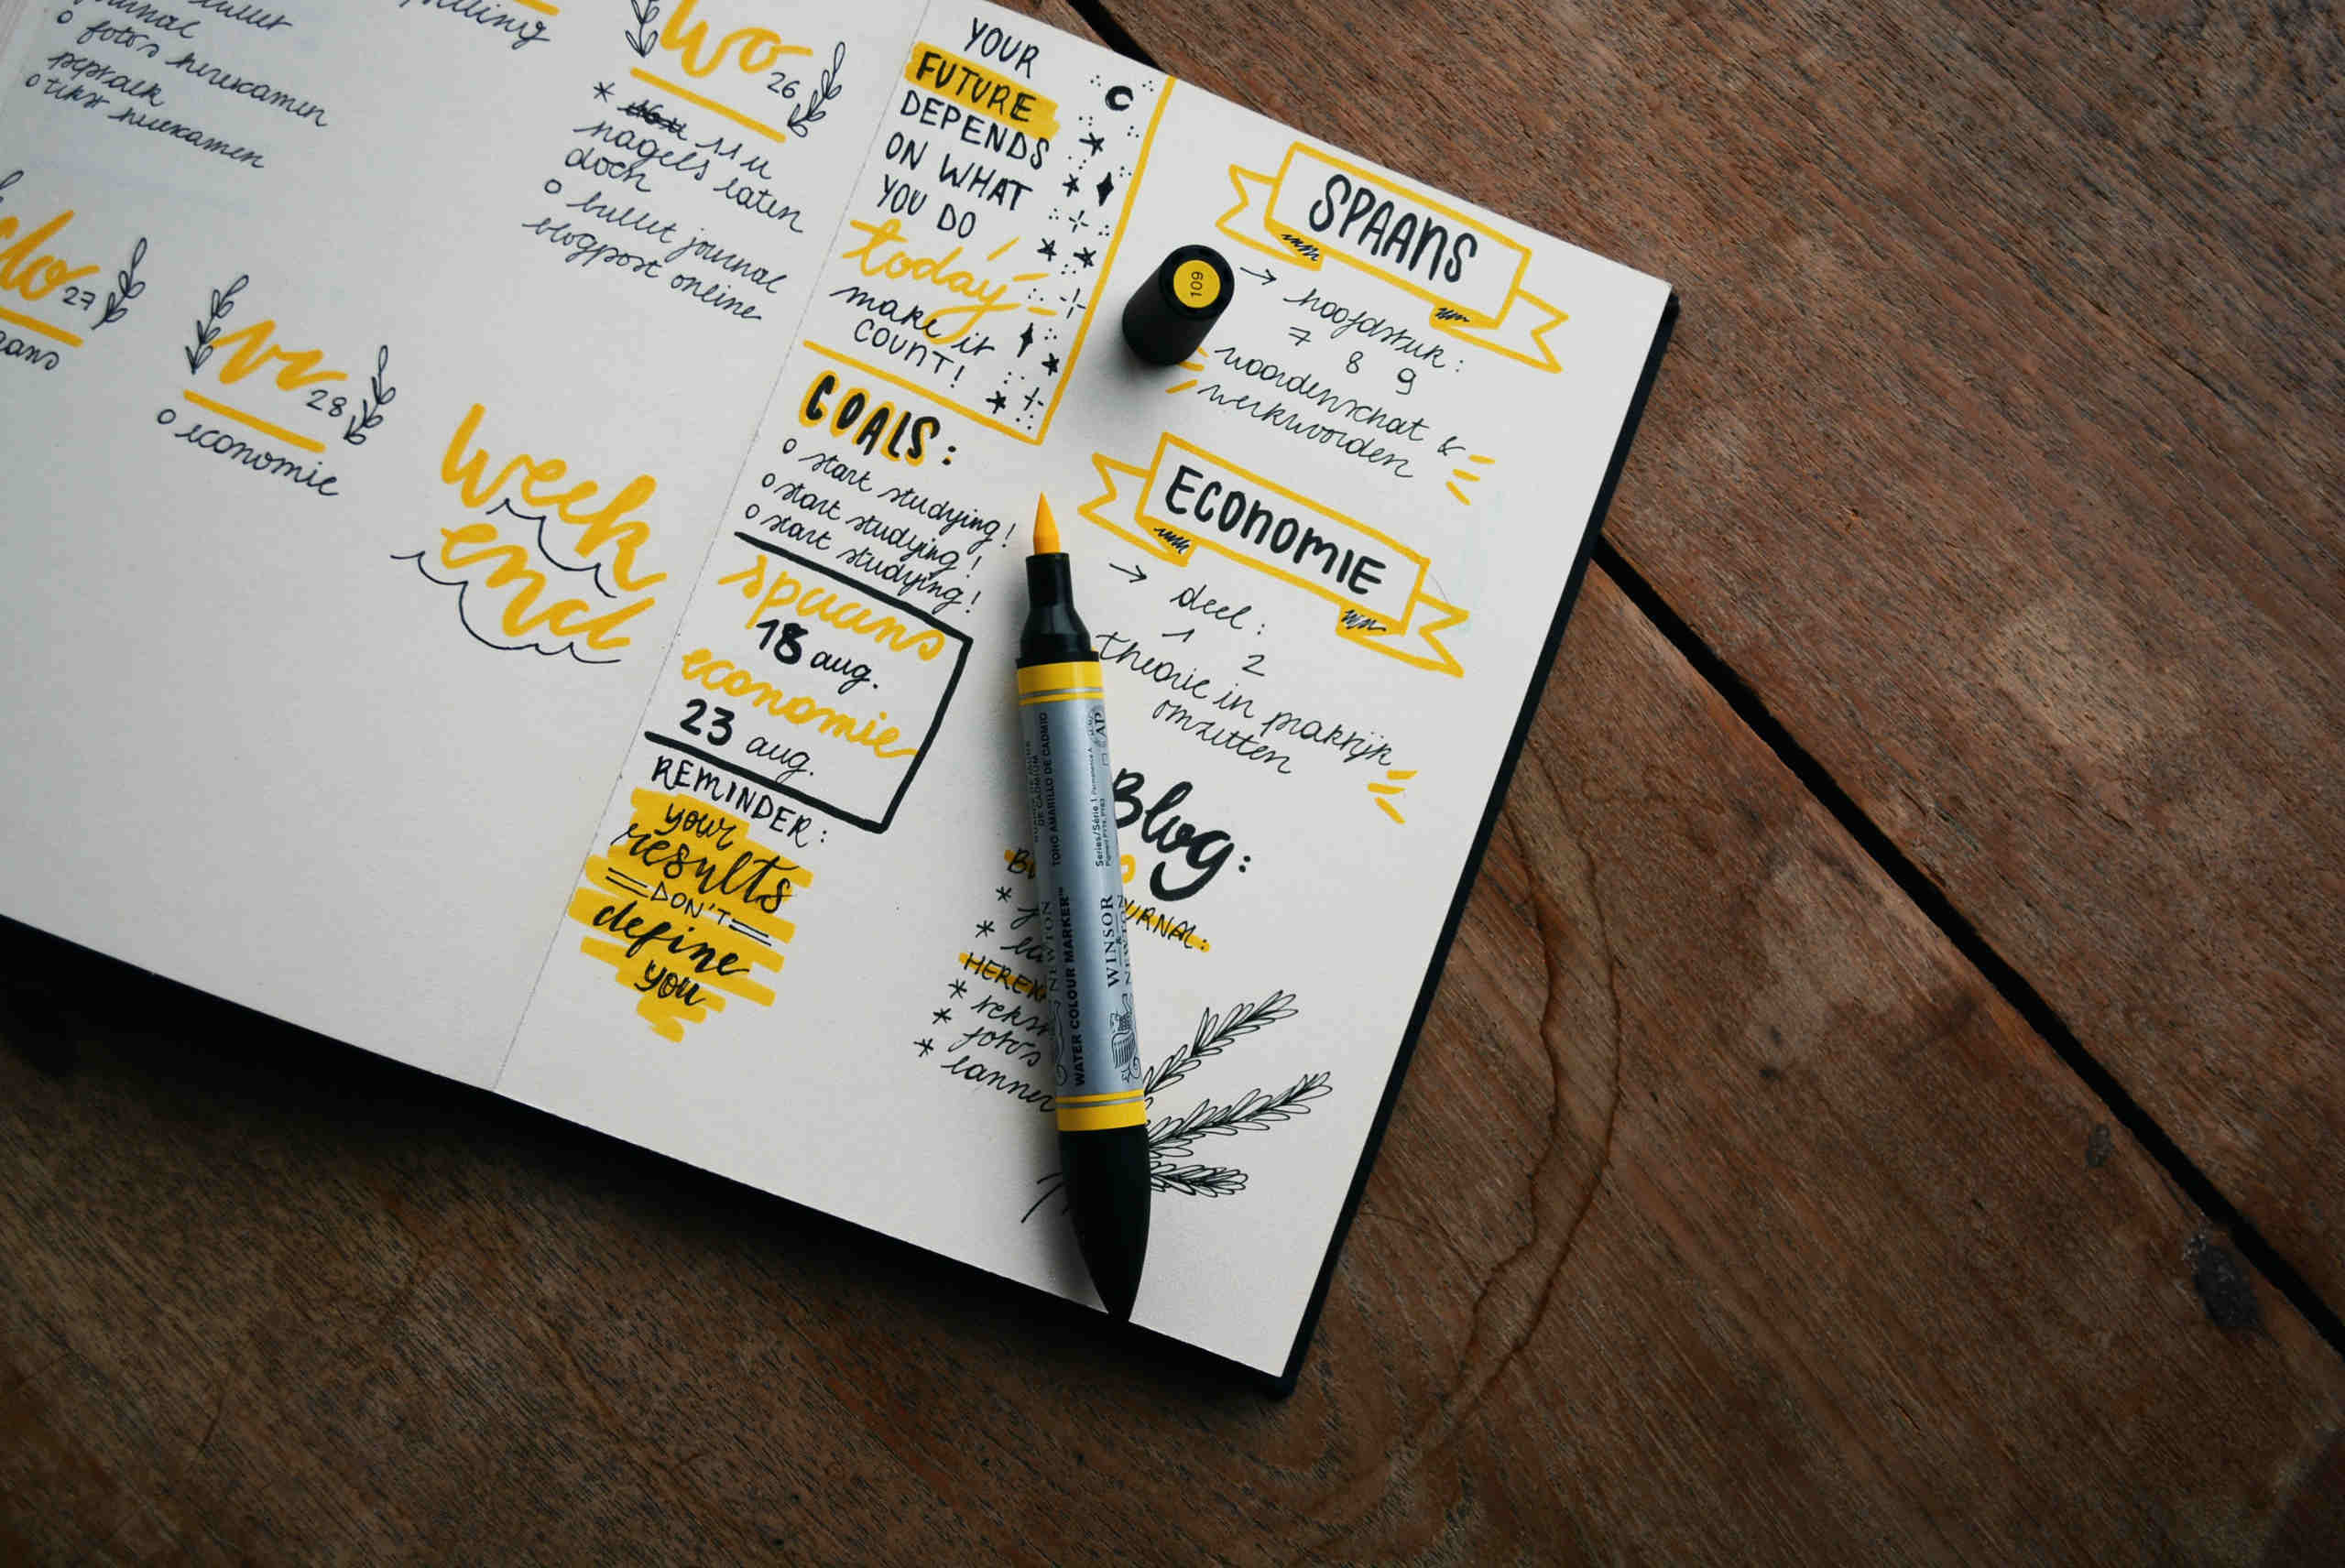 journal
o foto's
o tekst
wo 26
* 11 u
nagels laten
doen
o bullet journal
blogpost online
do 27
vr 28
o economie
week
end
YOUR
FUTURE
DEPENDS
ON WHAT
YOU DO
today
make it
COUNT!
GOALS:
o start studying!
o start studying!
o start studying!
spaans
18 aug.
economie
23 aug.
REMINDER:
your
results
DON'T
define
you
SPAANS
→ hoofdstuk:
7 8 9
woordenschat &
werkwoorden
ECONOMIE
→ deel:
1 2
theorie in praktijk
omzetten
Blog:
* tekst
* foto's
*
109
WINSOR
NEWTON
WATER COLOUR MARKER™
Series/Série 1
AP
TONO AMARILLO DE CADMIO